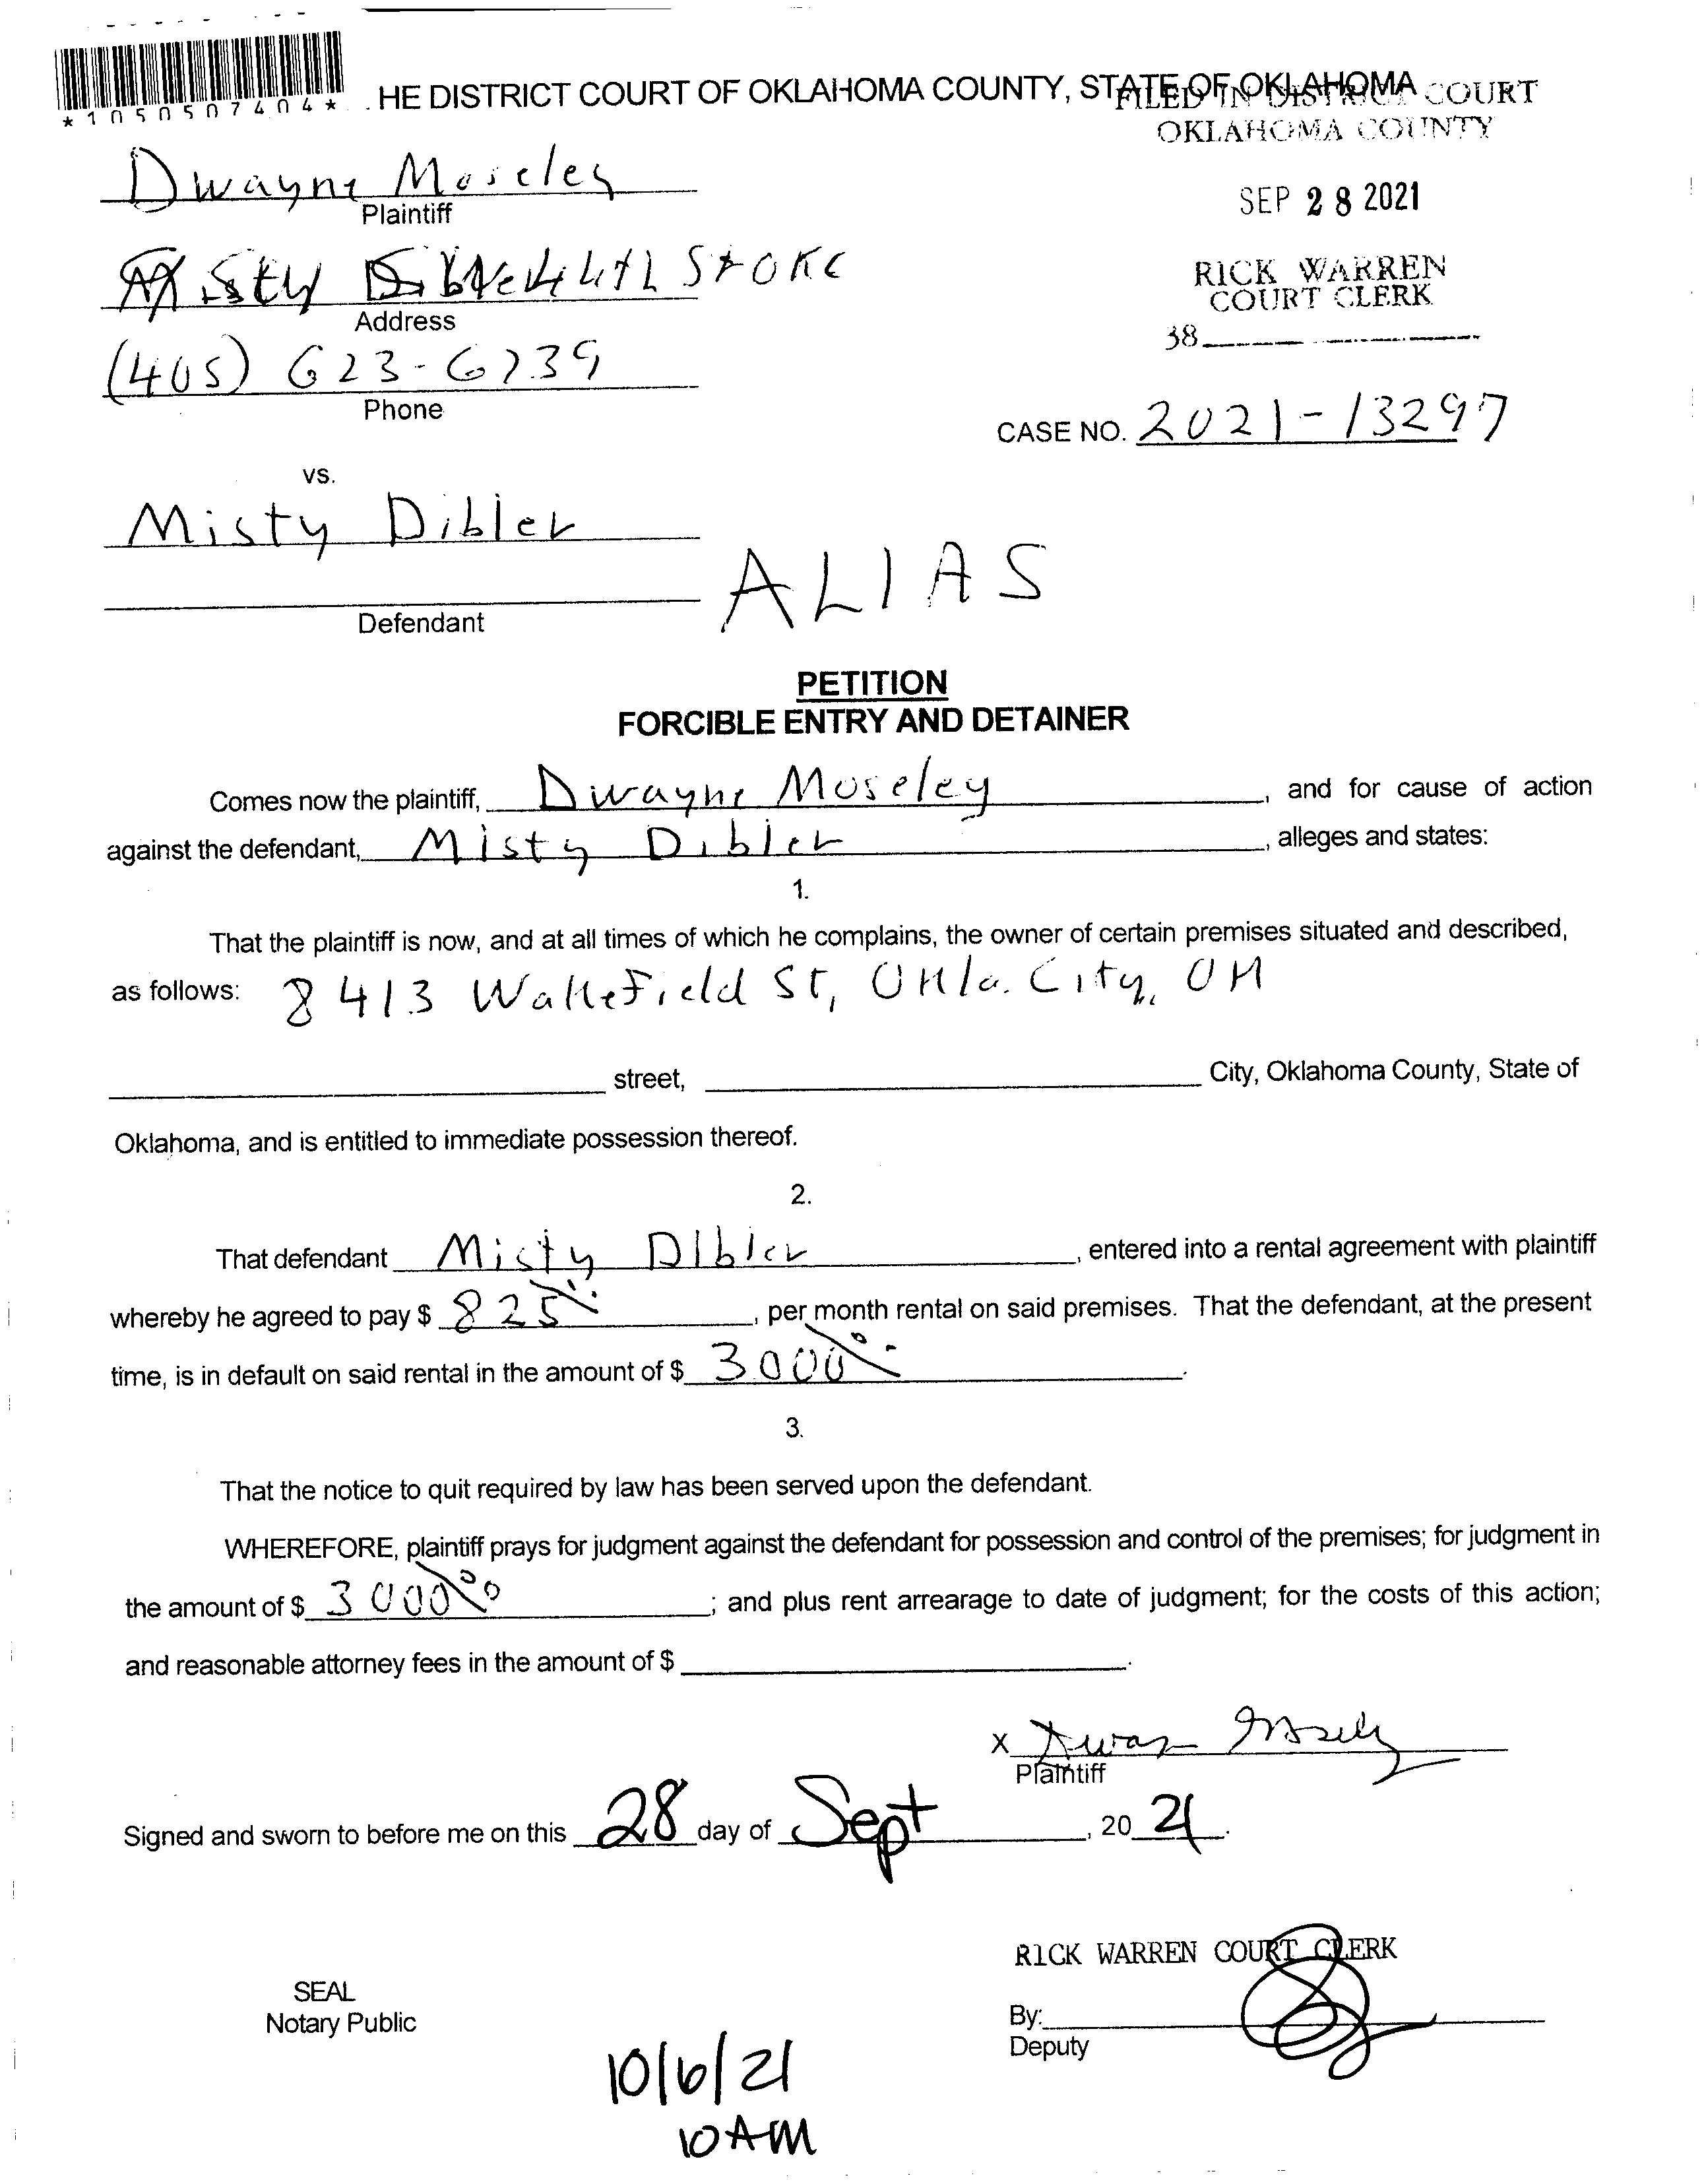 *1050507404*
HE DISTRICT COURT OF OKLAHOMA COUNTY, STATE OF OKLAHOMA
FILED IN DISTRICT COURT
OKLAHOMA COUNTY
Dwayne Moseley
Plaintiff
SEP 28 2021
Misty St OKC
Address
RICK WARREN
COURT CLERK
38
(405) 623-6739
Phone
CASE NO. 2021-13297
vs.
Misty Dibler
ALIAS
Defendant
PETITION
FORCIBLE ENTRY AND DETAINER
Comes now the plaintiff, Dwayne Moseley, and for cause of action
against the defendant, Misty Dibler, alleges and states:
1.
That the plaintiff is now, and at all times of which he complains, the owner of certain premises situated and described,
as follows: 8413 Wakefield St, Okla. City, OK
street, City, Oklahoma County, State of
Oklahoma, and is entitled to immediate possession thereof.
2.
That defendant Misty Dibler, entered into a rental agreement with plaintiff
whereby he agreed to pay $ 825, per month rental on said premises. That the defendant, at the present
time, is in default on said rental in the amount of $ 3000.
3.
That the notice to quit required by law has been served upon the defendant.
WHEREFORE, plaintiff prays for judgment against the defendant for possession and control of the premises; for judgment in
the amount of $ 3000 00; and plus rent arrearage to date of judgment; for the costs of this action;
and reasonable attorney fees in the amount of $ .
X Dwayne Moseley
Plaintiff
Signed and sworn to before me on this 28 day of Sept, 2021.
RICK WARREN COURT CLERK
SEAL
Notary Public
By:
Deputy
10/6/21
10 AM